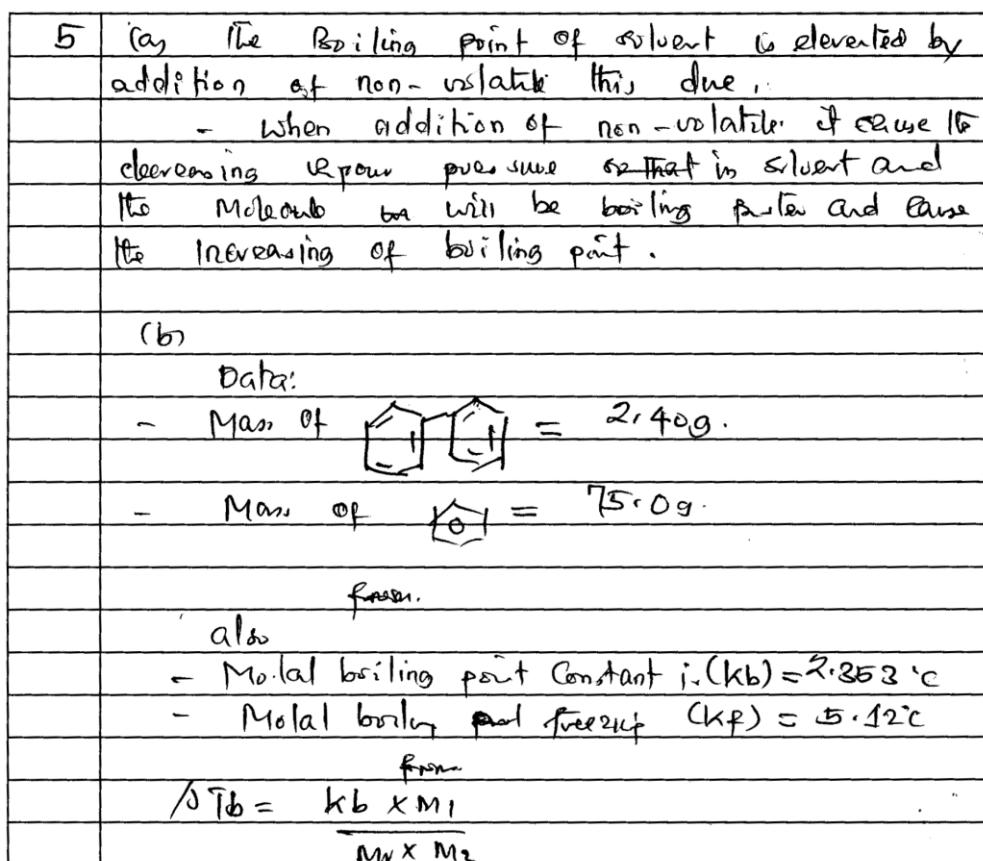 5 (a) The Boiling point of solvent is elevented by
addition of non-volatile this due,
- when addition of non-volatile it cause the
decreasing vapour pressure so that in solvent and
the Molecule will be boiling faster and cause
the Increasing of boiling point.
(b)
Data:
- Mass of = 2.40g.
- Mass of = 75.0g.
from.
also
- Molal boiling point Constant i.(kb) = 2.353 °C
- Molal boiling freezing (kf) = 5.12°C
from
ΔTb = kb × M1
Mr × M2